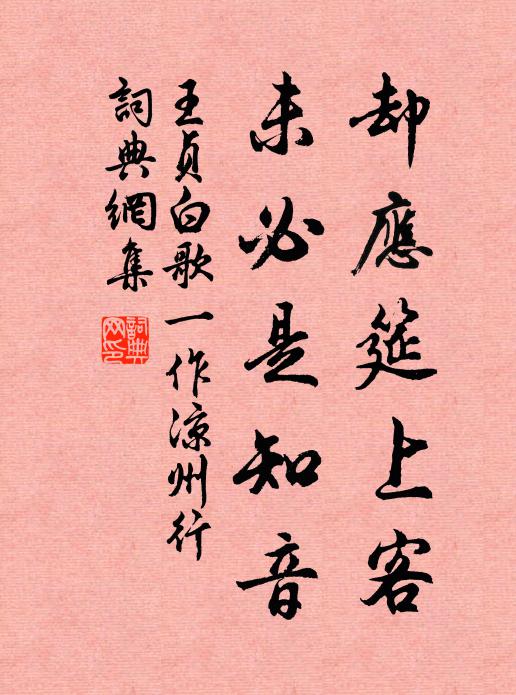 却應筵上客
未必是知音
王貞白歌一作涼州行
詞典網集
詞典网印